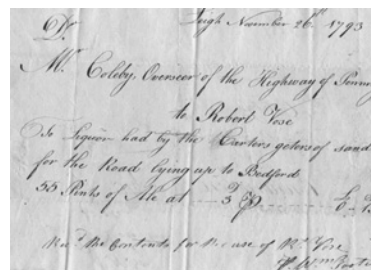 Dr Leigh November 26th 1793
Mr Coleby, Overseer of the Highway of Penn
to Robert Vose
To Liquor had by the Carters getors of sand
for the Road lying up to Bedford
55 Pints of Ale at 3
Recd the Contents for the use of Rt Vose
Wm